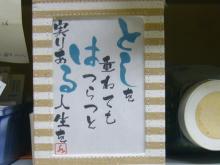 としを
重ねても
はつらつと
実りある
人生を